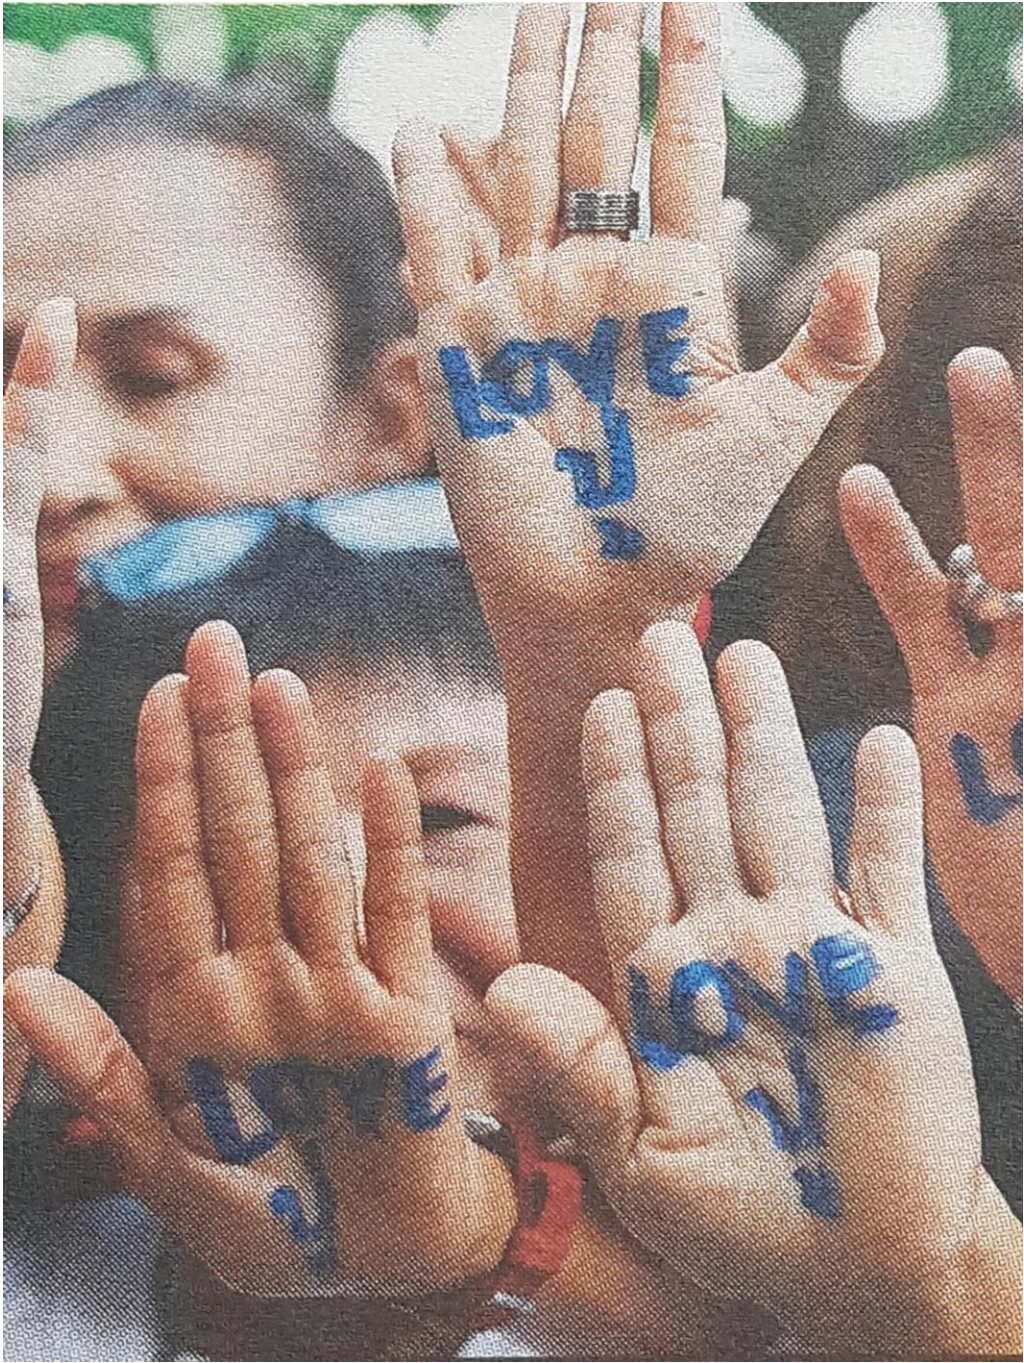 LOVE
LO
LOVE
LOVE